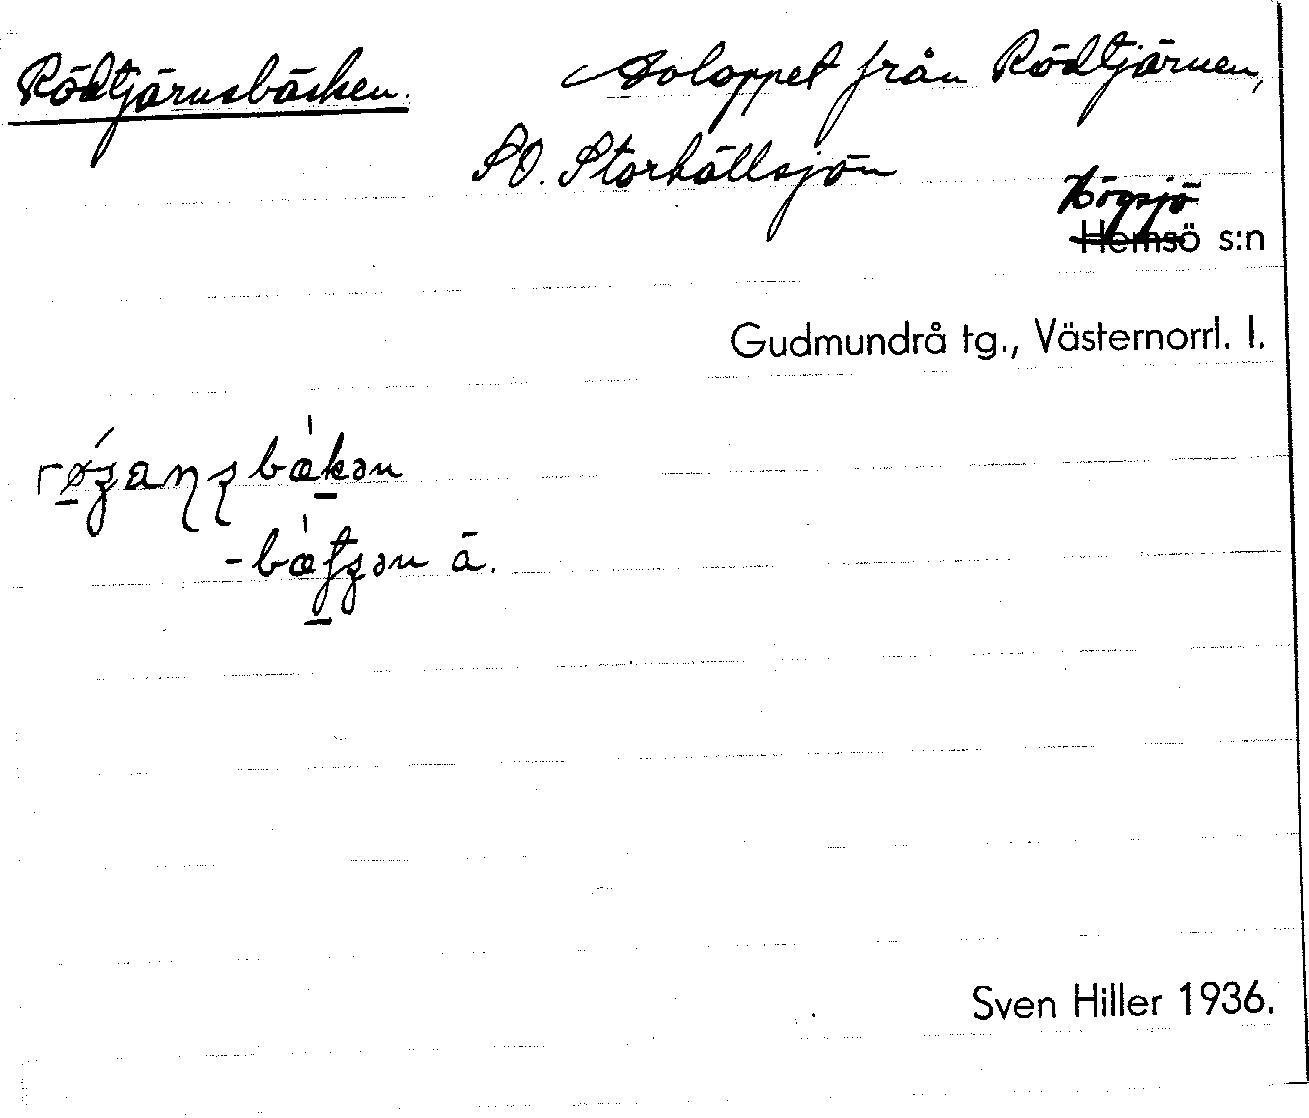 Rödtjärnsbäcken. Avloppet från Rödtjärnen,
SO. Storhållsjön
Högsjö
Hemsö s:n
Gudmundrå tg., Västernorrl. l.
-bæ̀tʒən ä.
Sven Hiller 1936.